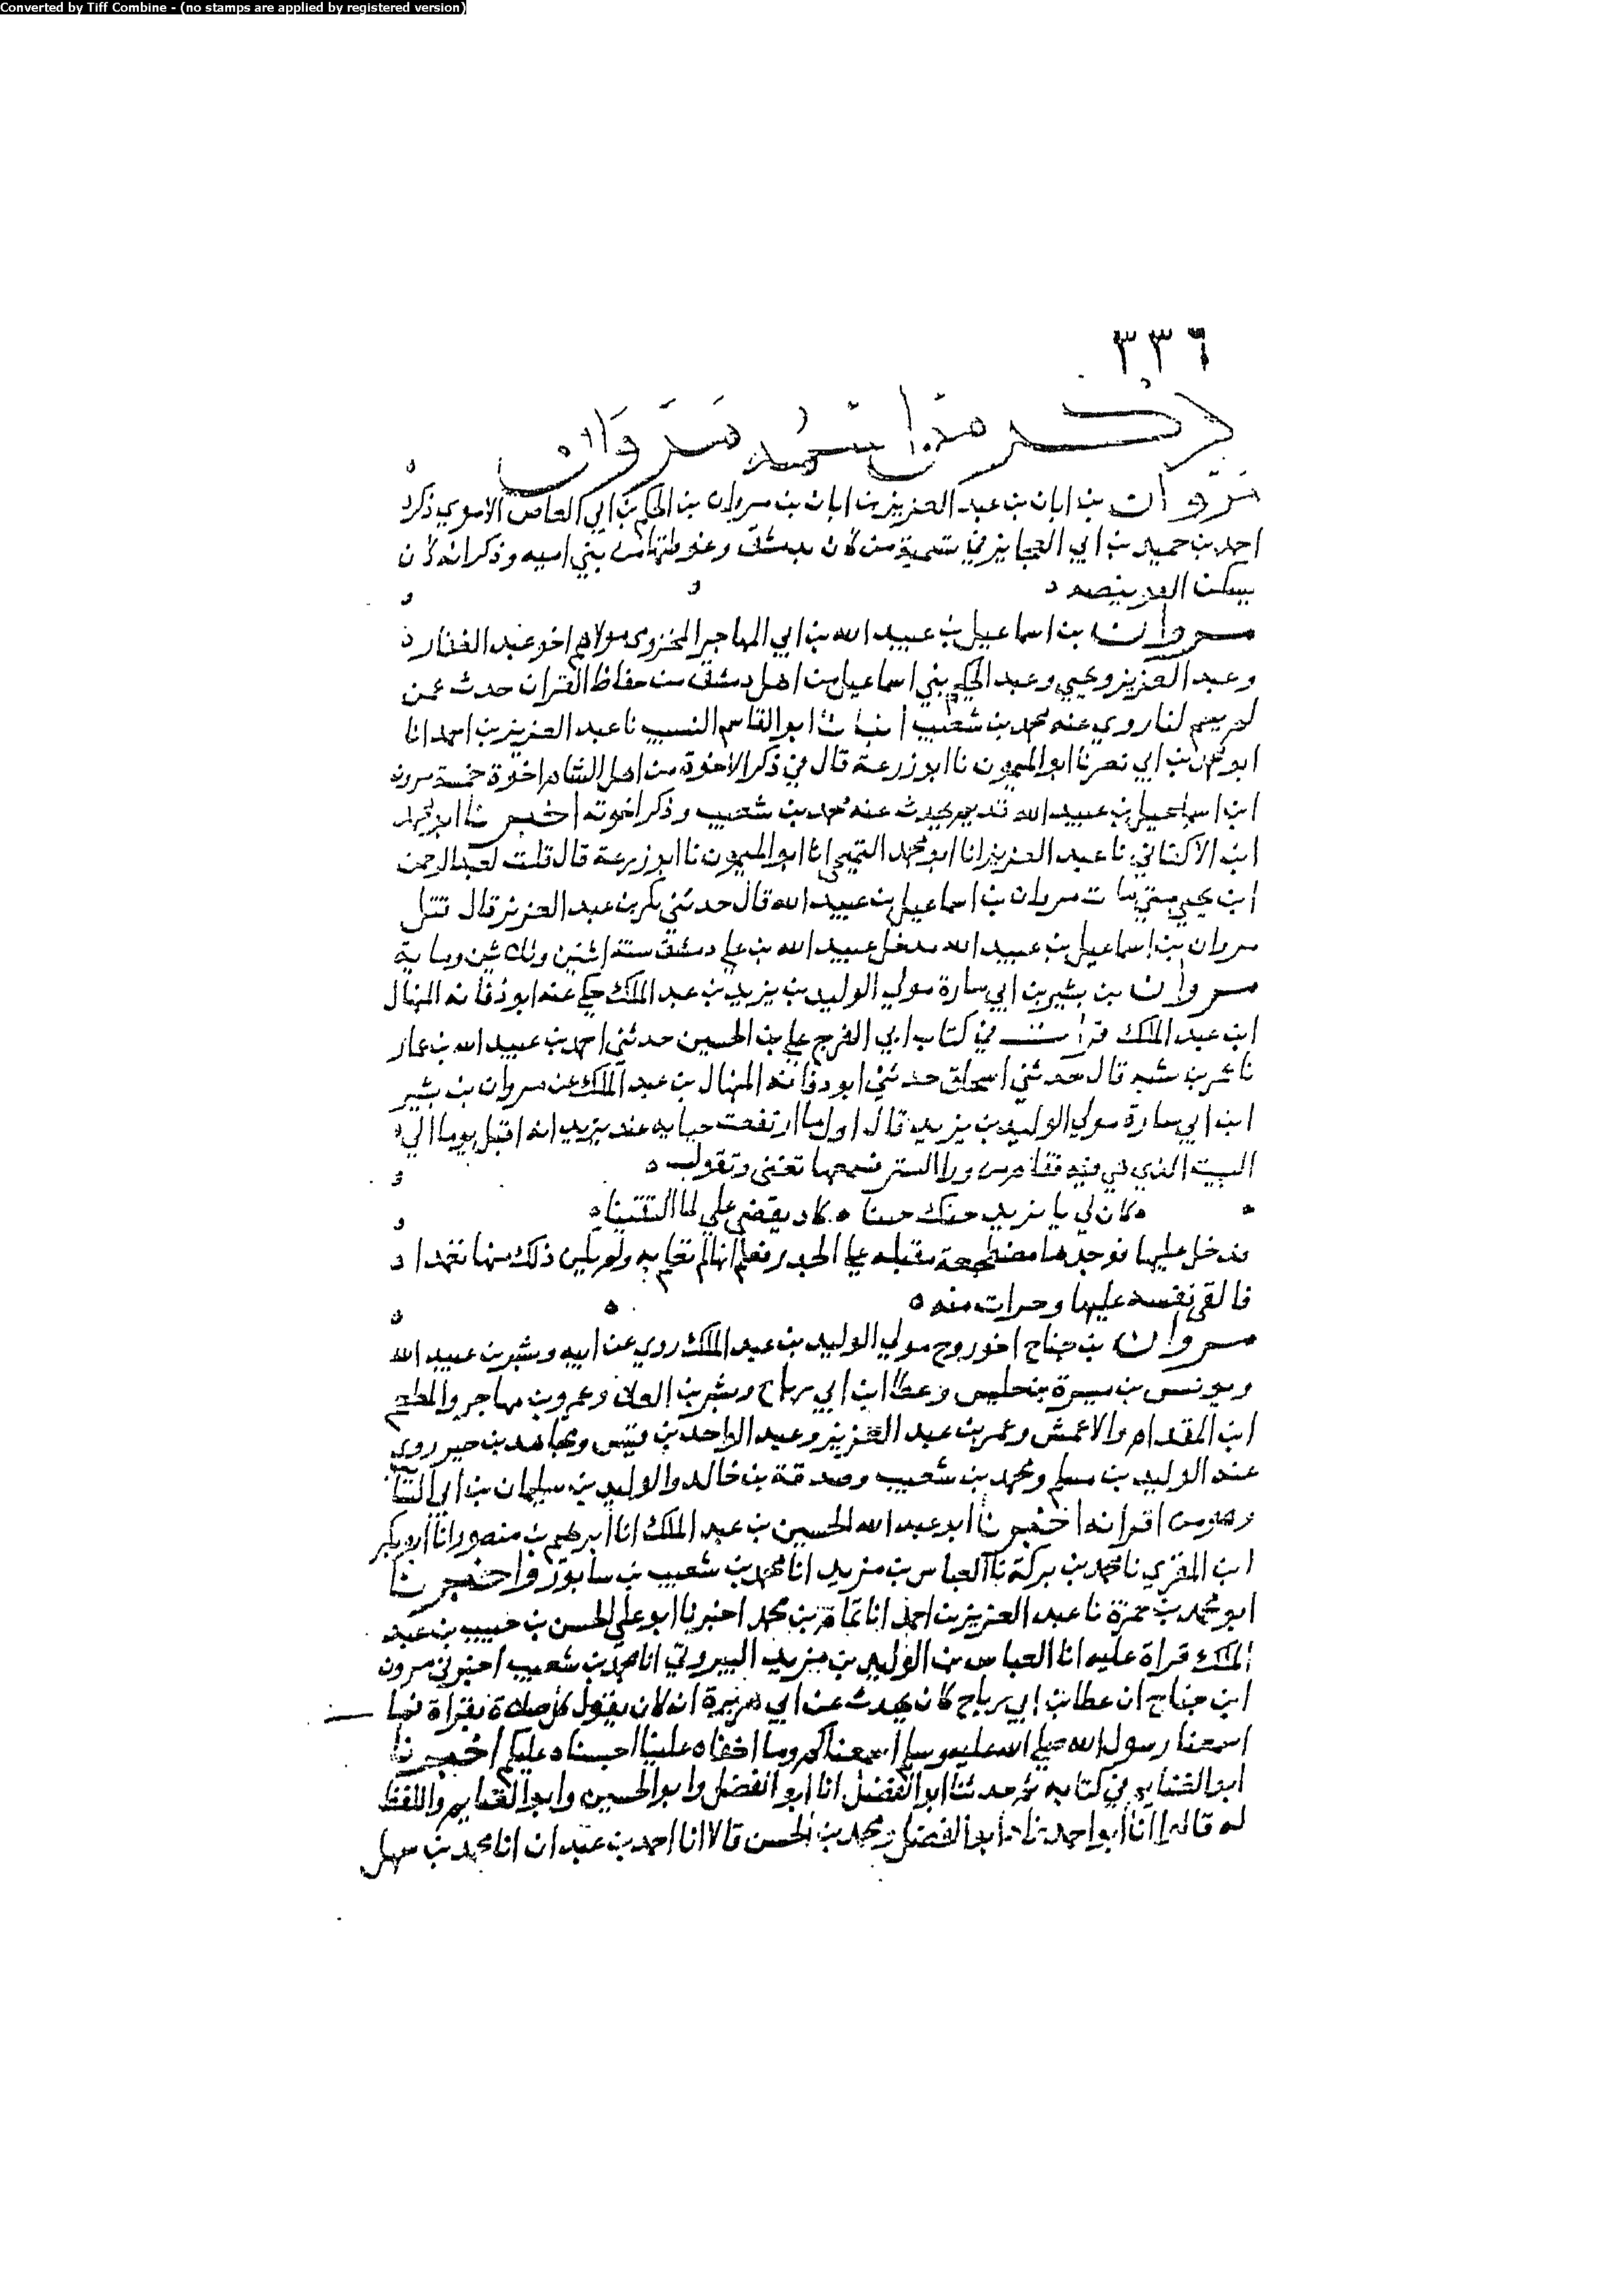 Converted by Tiff Combine - (no stamps are applied by registered version)
٣٣٦
ذكر من اسمه مروان
مروان بن ابان بن عبد العزيز بن ابان بن مروان بن الحكم بن ابي العاص الاموي ذكره
احمد بن حميد بن ابي العجايز في تسمية من كان بدمشق وغوطتها من بني اميه وذكر انه كان
يسكن
مروان بن اسماعيل بن عبيد الله بن ابي المهاجر المخزومي مولاهم اخو عبد الغفار
وعبد العزيز ويحيي وعبد الحكيم بني اسماعيل من اهل دمشق من حفاظ القران حدث عن
لم يسم لنا روي عنه محمد بن شعيب انبانا ابو القاسم النسيب نا عبد العزيز بن احمد انا
ابو محمد بن ابي نصر نا ابو الميمون نا ابو زرعة قال في ذكر الاخوة من اهل الشام اخوة خمسة مرون
ابن اسماعيل بن عبيد الله قديم يحدث عنه محمد بن شعيب وذكر اخوته اخبرنا ابو محمد
ابن الاكفاني نا عبد العزيز انا ابو محمد التميمي انا ابو الميمون نا ابو زرعة قال قلت لعبد الرحمن
ابن يحيي متي مات مروان بن اسماعيل بن عبيد الله قال حدثني بكر بن عبد العزيز قال قتل
مروان بن اسماعيل بن عبيد الله مدخل عبيد الله بن علي دمشق سنة اثنين وثلاثين وماية
مروان بن بشير بن ابي سارة مولي الوليد بن يزيد بن عبد الملك حكي عنه ابو ذفافه المنهال
ابن عبد الملك قرات في كتاب ابي الفرج علي بن الحسين حدثني احمد بن عبيد الله بن عمار
نا عمر بن شبه قال حدثني اسحاق حدثني ابو ذفافه المنهال بن عبد الملك عن مروان بن بشير
ابن ابي سارة مولي الوليد بن يزيد قال اول ما ارتفعت حبابه عند يزيد انه اقبل يوما الي
البيت الذي هي فيه فقام من ورا الستر فسمعها تغني وتقول
كان لي يا يزيد حبك حينا كاد يقضي علي لما التقينا
فدخل عليها فوجدها مضطجعة مقبله علي الجدر فعلم انها لم تعلم به ولم يكن ذلك منها تعمدا
فالقي نفسه عليها وحرات منه
مروان بن جناح اخو روح مولي الوليد بن عبد الملك روي عن ابيه وبشر بن عبيد الله
ويونس بن ميسرة بن حلبس وعطا ابن ابي رباح وبشر بن العلا وعمرو بن مهاجر والمطعم
ابن المقدام والاعمش وعمر بن عبد العزيز وعبد الواحد بن قيس ومجاهد بن جبر روي
عنه الوليد بن مسلم ومحمد بن شعيب وصدقة بن خالد والوليد بن سليمان بن ابي السائب
وهو من اقرانه اخبرنا ابو عبد الله الحسين بن عبد الملك انا ابرهيم بن منصور انا ابو بكر
ابن المقري نا محمد بن بركة نا العباس بن مزيد انا محمد بن شعيب بن سابور واخبرنا
ابو محمد بن حمزة نا عبد العزيز بن احمد انا تمام بن محمد اخبرنا ابو علي الحسن بن حبيب بن عبد
الملك قراة عليه انا العباس بن الوليد بن مزيد البيروتي انا محمد بن شعيب اخبرني مرون
ابن جناح ان عطا بن ابي رباح كان يحدث عن ابي هريرة انه كان يقول كل صلاة يقراة فما
اسمعنا رسول الله صلي الله عليه وسلم اسمعناكم وما اخفاه علينا اخفيناه عليكم اخبرنا
ابو الغنايم في كتابه ثم حدثنا ابو الفضل انا ابو الفضل وابو الحسين وابو الغنايم واللفظ
له قالوا انا ابو احمد زاد ابو الفضل ومحمد بن الحسن قالا انا احمد بن عبدان انا محمد بن سهل